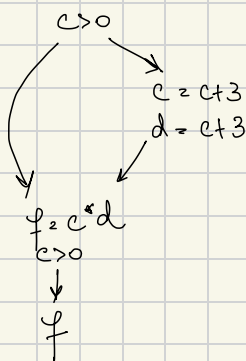 c>0
c = c+3
d = c+3
f = c*d
c>0
f